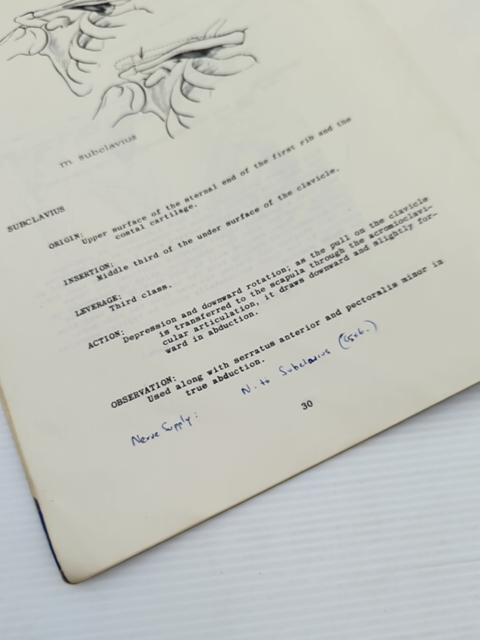 m subclavius
SUBCLAVIUS
ORIGIN:
Upper surface of the sternal end of the first rib and the
costal cartilage.
INSERTION:
Middle third of the under surface of the clavicle.
LEVERAGE:
Third class.
ACTION:
Depression and downward rotation; as the pull on the clavicle
is transferred to the scapula through the acromioclavi-
cular articulation, it draws downward and slightly for-
ward in abduction.
OBSERVATION:
Used along with serratus anterior and pectoralis minor in
true abduction.
Nerve Supply: N. to Subclavius
30